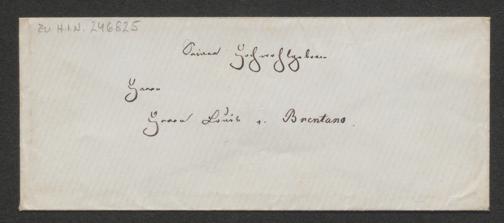 Zu H.I.N. 246825
Seiner Hochwohlgeboren
Herrn
Herrn Louis v. Brentano.